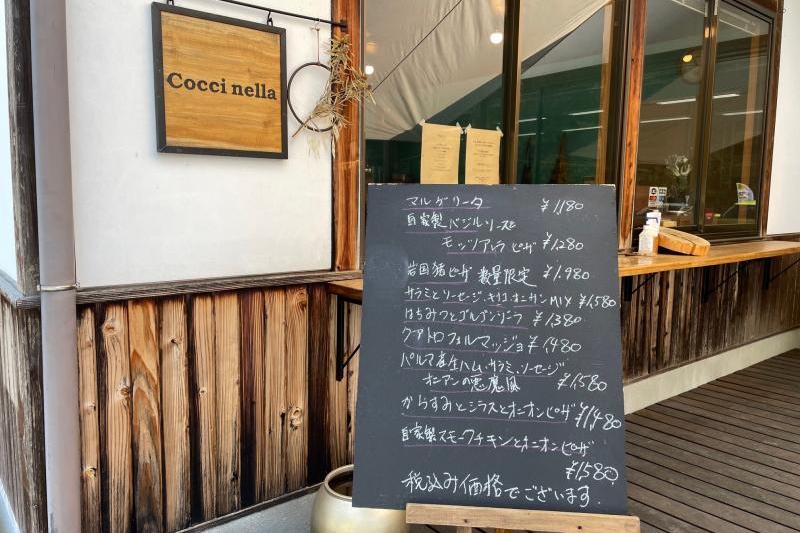 Cocci nella
マルゲリータ ¥1,180
自家製バジルソースと
モッツアレラ ピザ ¥1,280
岩国猪ピザ 数量限定 ¥1,980
サラミとソーセージ、キノコ、オニオンMIX ¥1,580
はちみつとゴルゴンゾーラ ¥1,380
クアトロフォルマッジョ ¥1,480
パルマ産生ハム、サラミ、ソーセージ
オニアンの悪魔風 ¥1,580
からすみとシラスとオニオンピザ ¥1,480
自家製スモークチキンとオニオンピザ
¥1,580
税込み価格でございます.